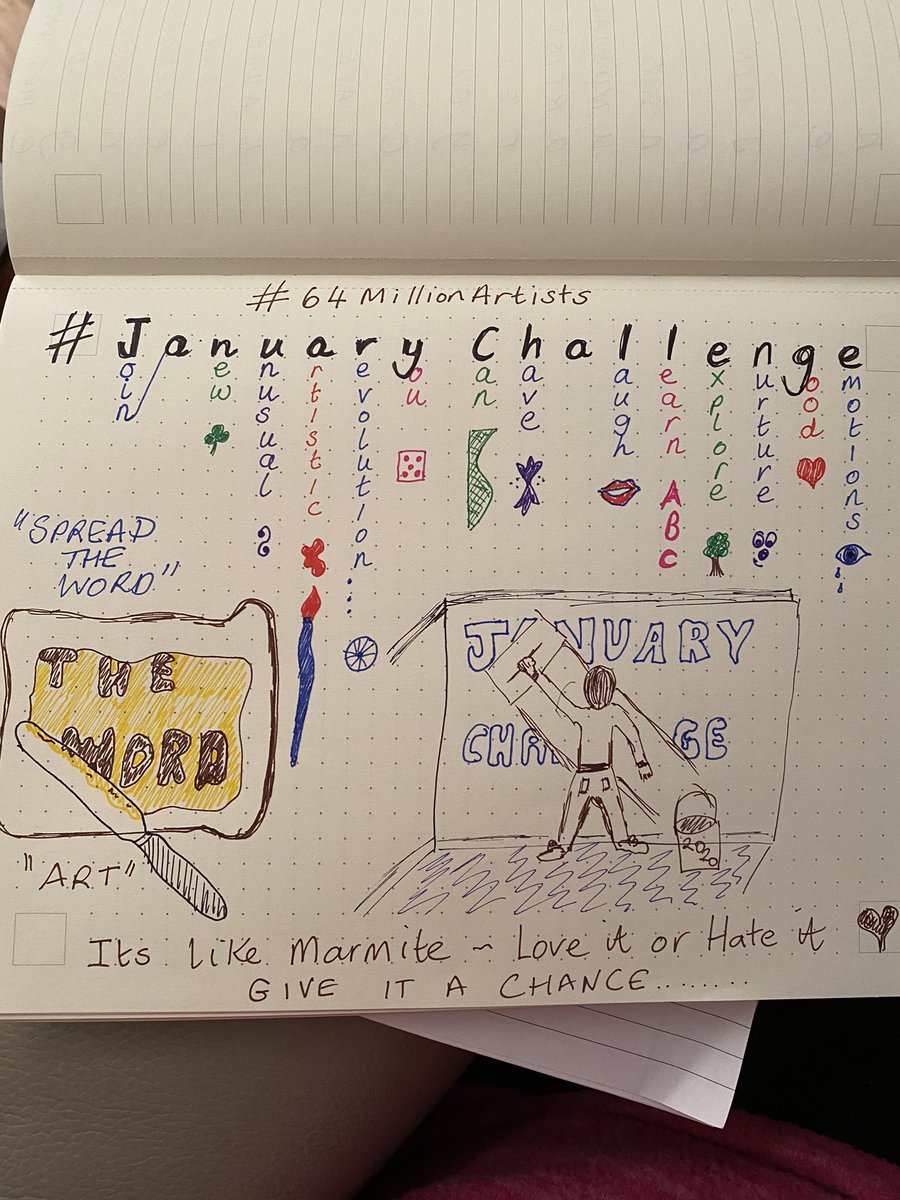 #64MillionArtists
#January Challenge
oin
ew
nusual
rtistic
evolution...
ou
an
ave
augh
earn
ABC
xplore
urture
ood
motions
"SPREAD
THE
WORD"
THE
WORD
"ART"
JANUARY
CHA GE
2020
Its like Marmite ~ Love it or Hate it
GIVE IT A CHANCE........